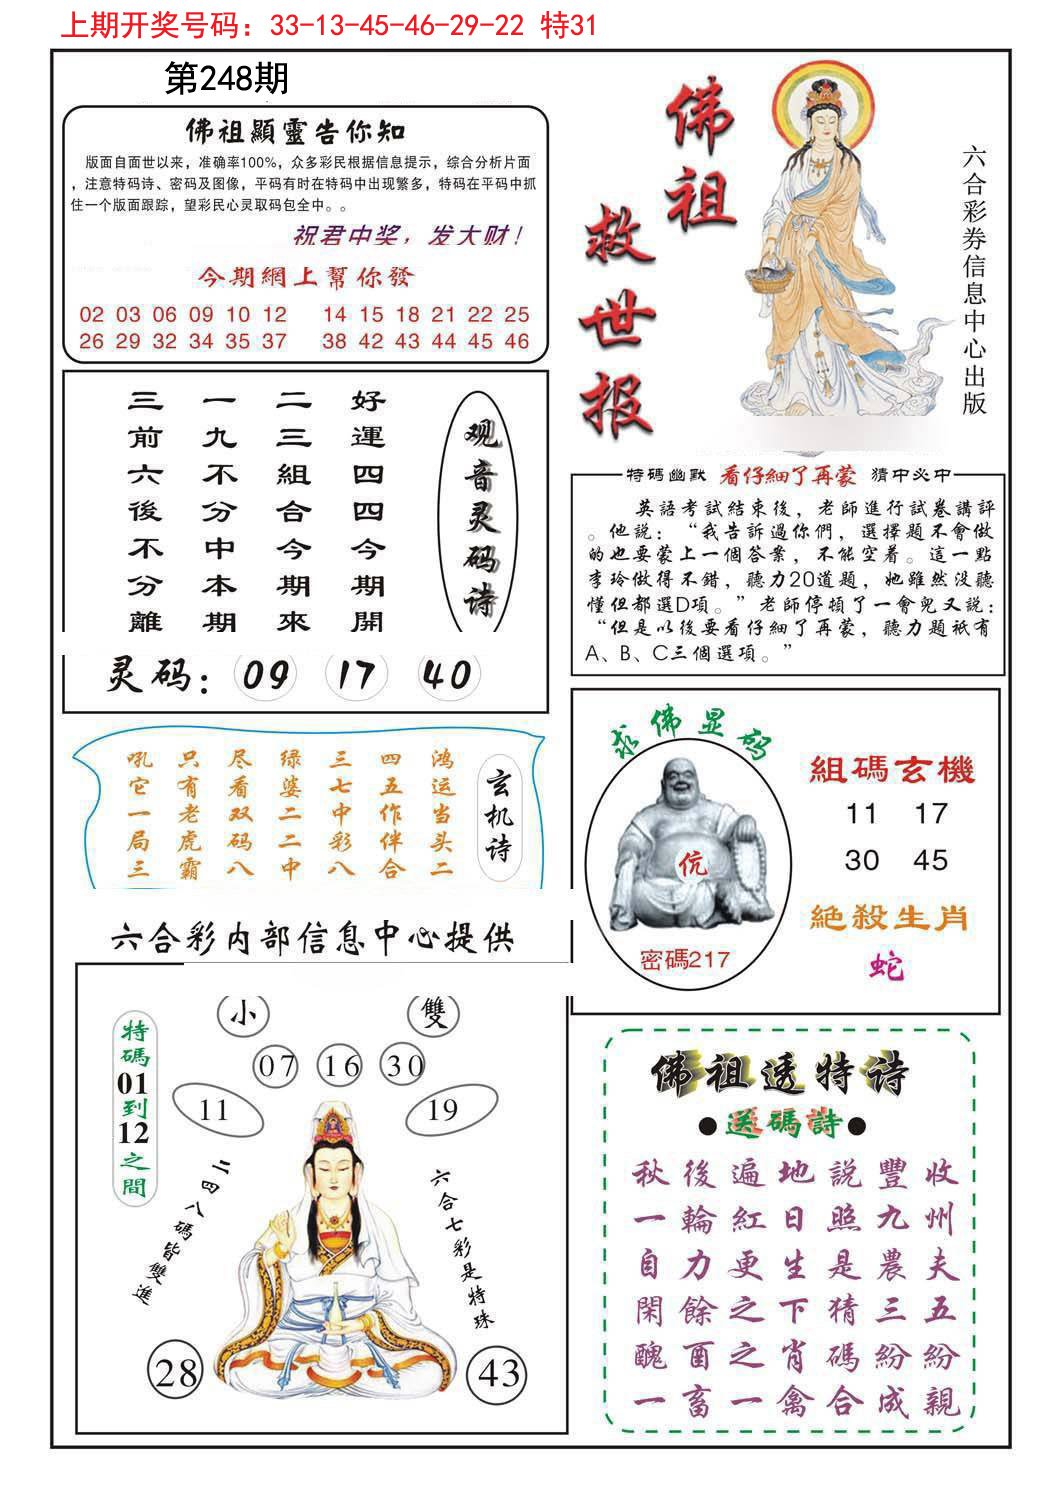 上期开奖号码：33-13-45-46-29-22 特31
第248期
佛祖顯靈告你知
版面自面世以来，准确率100%，众多彩民根据信息提示，综合分析片面
，注意特码诗、密码及图像，平码有时在特码中出现繁多，特码在平码中抓
住一个版面跟踪，望彩民心灵取码包全中。。
祝君中奖，发大财！
今期網上幫你發
02 03 06 09 10 12 14 15 18 21 22 25
26 29 32 34 35 37 38 42 43 44 45 46
佛祖
救世报
六合彩券信息中心出版
观音灵码诗
好運四四今期開
二三組合今期來
一九不分中本期
三前六後不分離
灵码：09 17 40
特碼幽默 看仔細了再蒙 猜中必中
英語考試結束後，老師進行試卷講評
。他説：“我告訴過你們，選擇題不會做
的也要蒙上一個答案，不能空着。這一點
李玲做得不錯，聽力20道題，她雖然没聽
懂但都選D項。”老師停頓了一會兒又説：
“但是以後要看仔細了再蒙，聽力題衹有
A、B、C三個選項。”
玄机诗
鸿运当头二
四五作伴合
三七中彩八
绿婆二二中
尽看双码八
只有老虎霸
吼它一局三
求佛显码
伉
密碼217
組碼玄機
11 17
30 45
絕殺生肖
蛇
六合彩内部信息中心提供
小 雙
07 16 30
11 19
特碼01到12之間
二四八碼皆雙進
六合七彩是特珠
28 43
佛祖透特诗
●送碼詩●
秋後遍地説豐收
一輪紅日照九州
自力更生是農夫
閑餘之下猜三五
醜酉之肖碼紛紛
一畜一禽合成親